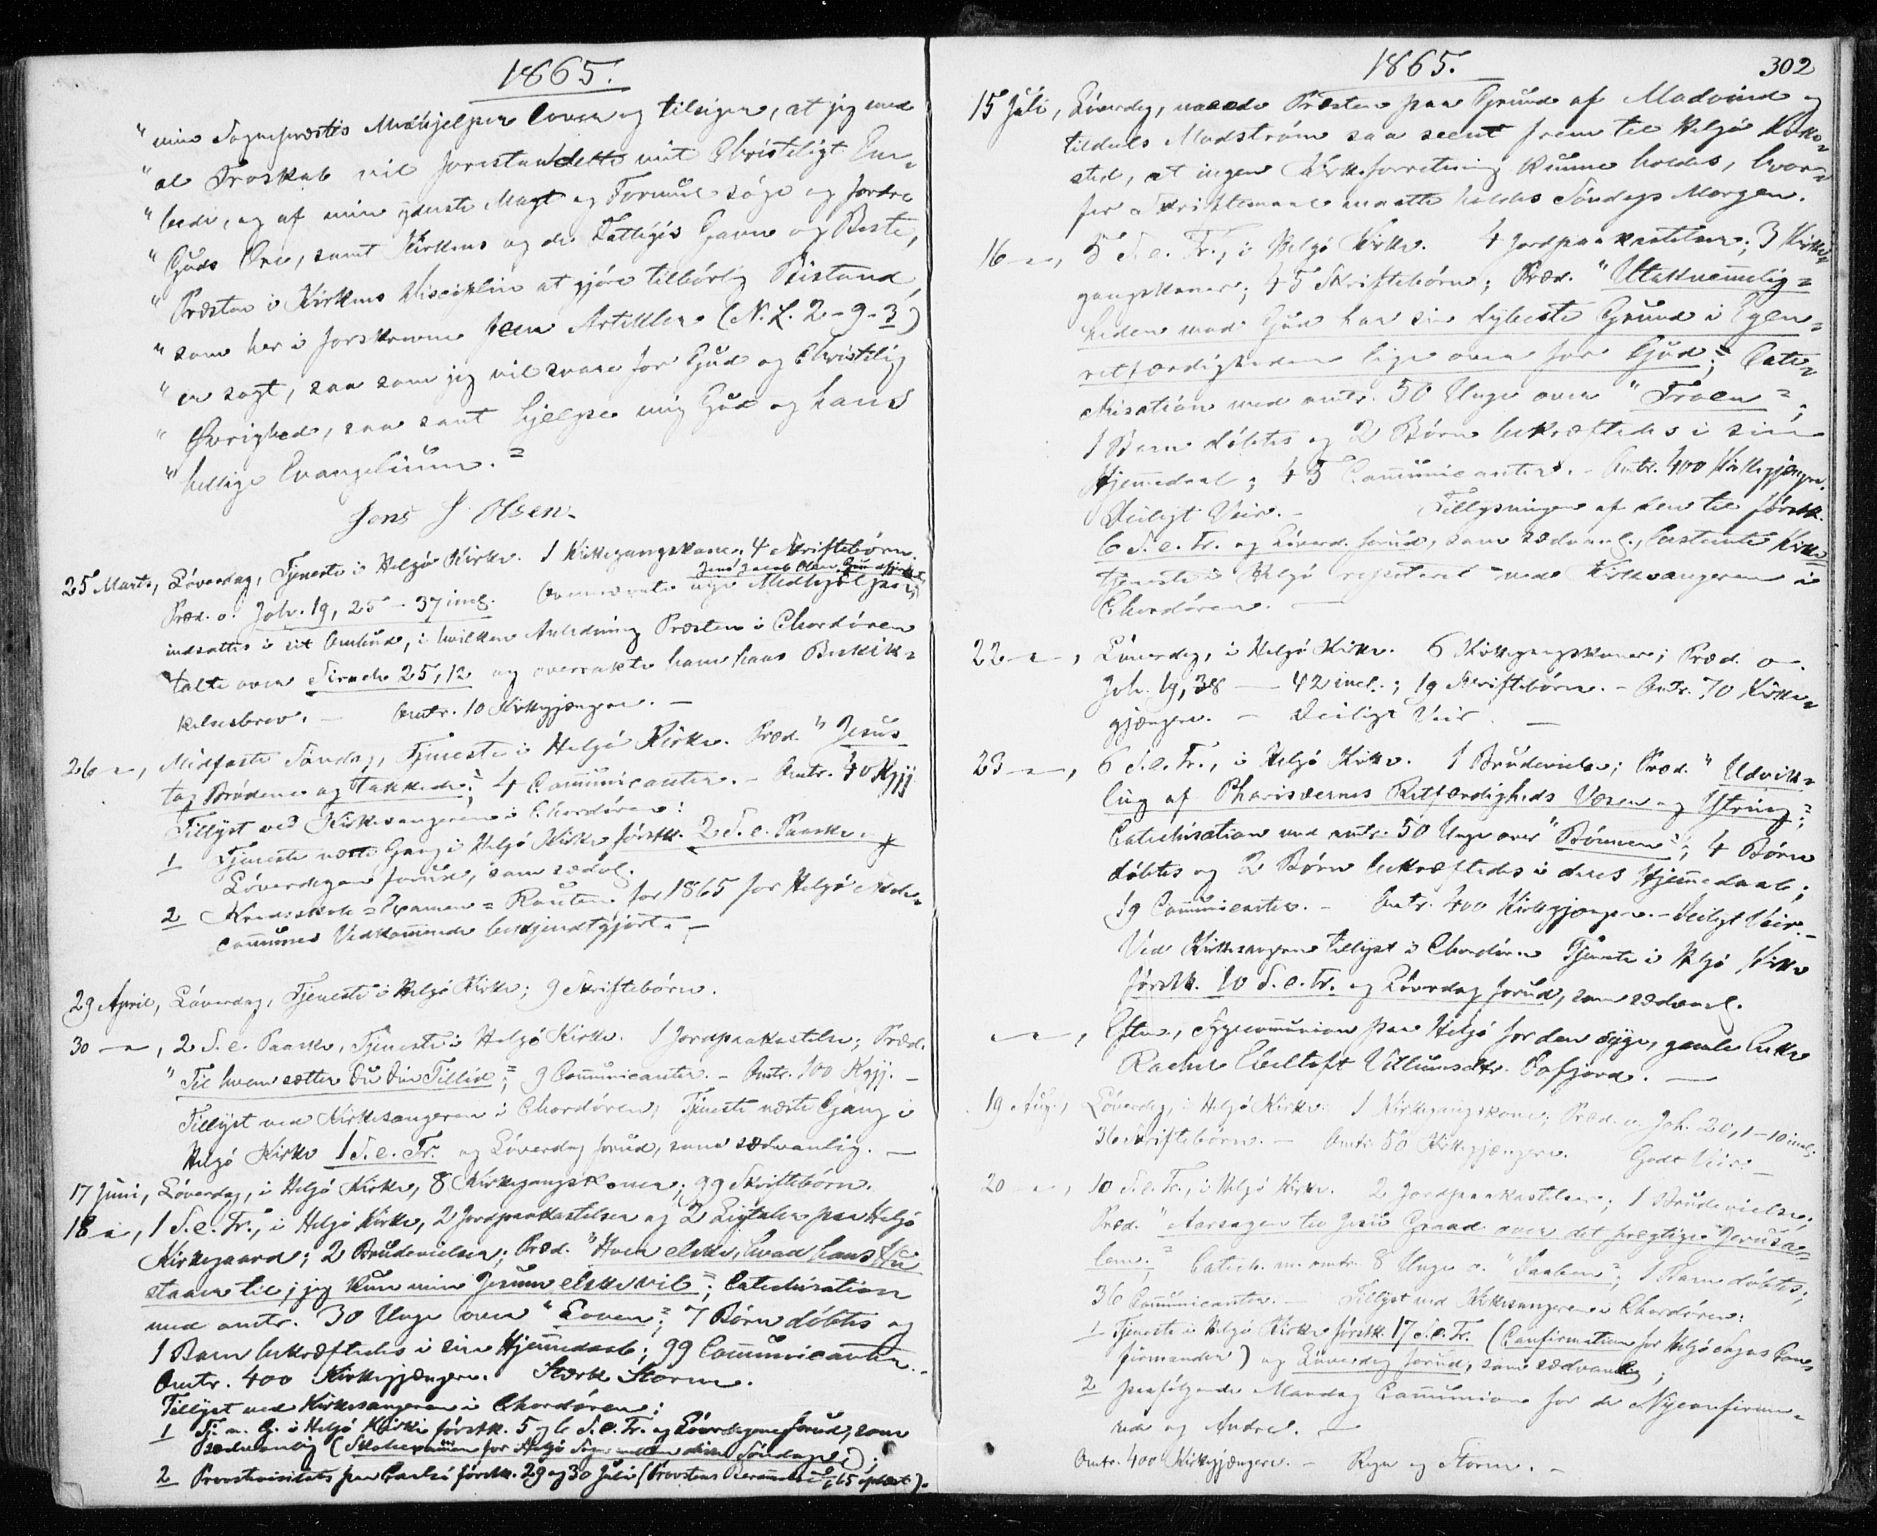 1865.
" min Sognepræstes Medhjelper lover og tilsiger, at jeg med
" al Troskab vil forestaa dette mit Christeligt Em-
" bede, og af min yderste Magt og Formue søge og fordre
" Guds Ære, samt Kirkens og de Fattiges Gavn og Beste,
" Præsten i Kirkens Disciplin at gjöre tilbörlig Bistand,
" som her i forskrevne fem Artikler (N. L. 2-9-3)
" er sagt, saa som jeg vil svare for Gud og Christelig
" Øvrighed, saa sant hjelpe mig Gud og hans
" hellige Evangelium."
Jens J. Olsen.
25 Marts, Löverdag, Tjeneste i Helgö Kirke. 1 Kirkegangskone; 4 Skriftebörn.
Jens Jacob Olsen
Præd. o. Joh. 19, 25-37 incl. Ovennævnte nye Medhjelper
indsattes i sit Ombud, i hvilken Anledning Præsten i Chordören
talte over Sirach 25, 12 og overrakte ham hans Beskik-
kelsesbrev. — Omtr. 10 Kirkegjængere. —
26 —, Midfaste Söndag, Tjeneste i Helgö Kirke. Præd. "Jesus
tog Brödene og takkede"; 4 Communicanter. - Omtr. 40 Kgjj.
Tillyst ved Kirkesangeren i Chordören:
1 Tjeneste næste Gang i Helgö Kirke förstk. 2 S. e. Paaske og
Löverdagen forud, som sædvl.
2 Kredsskole-Examen-Routen for 1865 for Helgö
Communes Vedkommende bekjendtgjort. —
29 April, Löverdag, Tjeneste i Helgö Kirke; 9 Skriftebörn.
30 —, 2 S. e. Paaske, Tjeneste i Helgö Kirke. 1 Jordpaakastelse; Præd.
"Til hvem sætter Du din Tillid"; 9 Communicanter. - Omtr. 100 Kgjj. -
Tillyst ved Kirkesangeren i Chordören, Tjeneste næste Gang i
Helgö Kirke 1 S. e. Tr. og Löverdag forud, som sædvanlig. —
17 Juni, Löverdag, i Helgö Kirke, 8 Kirkegangskoner; 99 Skriftebörn.
18 —, 1 S. e. Tr., i Helgö Kirke, 2 Jordpaakastelser og 2 Ligtaler paa Helgö
Kirkegaard; 2 Brudevielser; Præd. "Hver elske, hvad hans
staaer til, jeg kun min Jesum elske vil"; Catechisation
med omtr. 30 Unge over "Loven"; 7 Börn döbtes og
1 Barn bekræftedes i sin Hjemmedaab; 99 Communicanter. -
Omtr. 400 Kirkegjængere. Stærk Storm.
Tillyst ved Kirkesangeren i Chordören:
1 Tj. n. G. i Helgö Kirke förstk. 5 og 6 S. e. Tr. og Löverdagene forud, som
sædvanlig (Skoleexamen for Helgö Sogn mellem disse Söndage);
2 Provstevisitats paa Carlsö förstk. 29 og 30 Juli
1865.
302
15 Juli, Löverdag, naaede Præsten paa Grund af Modvind og
tildeels Modström saa seent frem til Helgö Kirke-
sted, at ingen Kirkeforretning kunne holdes, hvor-
for Skriftemaal maatte holdes Söndags Morgen.
16 —, 5 S. e. Tr., i Helgö Kirke. 4 Jordpaakastelser; 3 Kirke-
gangskoner; 45 Skriftebörn; Præd. "Utaknemmelig-
heden mod Gud har sin dybeste Grund i Egen-
retfærdigheden lige over for Gud"; Cate-
chisation med omtr. 50 Unge over "Troen";
1 Barn döbtes og 2 Börn bekræftedes i sin
Hjemmedaab; 45 Communicanter. - Omtr. 400 Kirkegjængere.
Deiligt Veir. - Tillysningen af den til förstk.
6 S. e. Tr. og Löverd. forud, som sædvanl., bestemte Kirke-
tjeneste i Helgö repeteret ved Kirkesangeren i
Chordören. —
22 —, Löverdag, i Helgö Kirke. 6 Kirkegangskoner; Præd. o.
Joh. 19, 38 — 42 incl.; 19 Skriftebörn. - Omtr. 70 Kirke-
gjængere. — Deiligt Veir. —
23 —, 6 S. e. Tr., i Helgö Kirke. 1 Brudevielse; Præd. "Udvik-
ling af Pharisæernes Retfærdigheds Væsen og Yttring";
Catechisation med omtr. 50 Unge over "Bönnen"; 4 Börn
döbtes og 2 Börn bekræftedes i deres Hjemmedaab;
19 Communicanter. - Omtr. 400 Kirkegjængere. - Deiligt Veir. -
Ved Kirkesangeren tillyst i Chordören Tjeneste i Helgö Kirke
förstk. 10 S. e. Tr. og Löverdag forud, som sædvanl.
— —, Efterm., Sygecommunion paa Helgö for den syge, gamle Enke
Rachel Ebeltoft Villumsdtr. Dafjord. —
19 Aug., Löverdag, i Helgö Kirke. 1 Kirkegangskone; Præd. o. Joh. 20, 1-10 incl.
36 Skriftebörn. - Omtr. 50 Kirkegjængere. Godt Veir. —
20 —, 10 S. e. Tr., i Helgö Kirke. 2 Jordpaakastelser; 1 Brudevielse;
Præd. "Aarsagen til Jesu Graad over det prægtige Jerusa-
lem"; Catech. m. omtr. 8 Unge o. "Daaben"; 1 Barn döbtes;
36 Communicanter. - Tillyst ved Kirkesangeren i Chordören:
1 Tjeneste i Helgö Kirke förstk. 17 S. e. Tr. (Confirmation for Helgö Sogns Con-
firmander) og Löverdag forud, som sædvanlig,
2 paafölgende Mandag Communion for de Nyconfirme-
rede og Andre. —
Omtr. 400 Kirkegjængere. - Regn og Storm. -